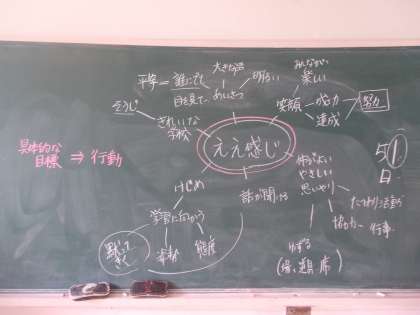 平等
誰にでも
大きな声
明るい
みんなが
楽しい
目を見て
あいさつ
そうじ
きれいな
学校
笑顔
協力
達成
努力
具体的な
目標 ⇒ 行動
ええ感じ
けじめ
話が聞ける
仲がよい
やさしい
思いやり
学習に向かう
黙って
きく
姿勢
態度
ゆずる
たてわり活動
協力
行事